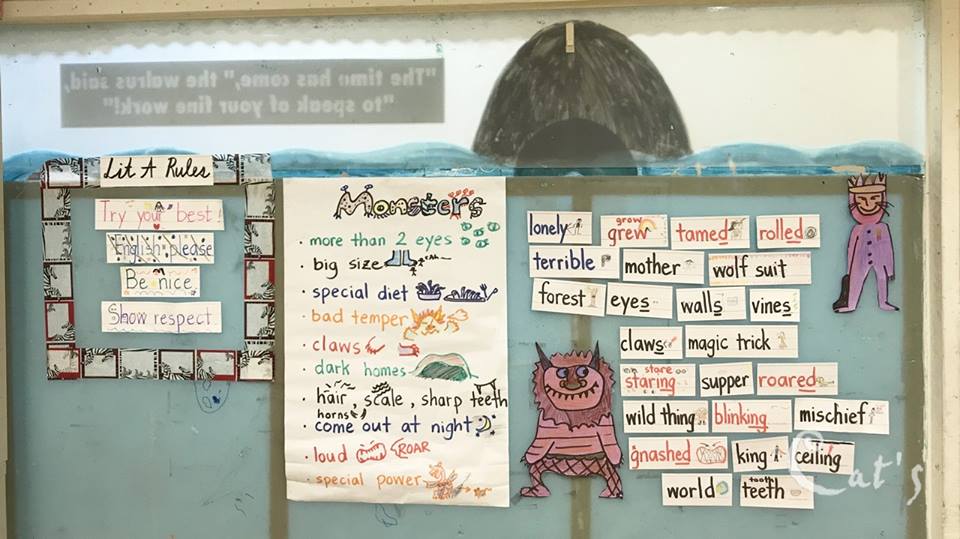 "The time has come," the walrus said,
"to speak of your fine work!"
Lit A Rules
Try your best!
English please
Be nice
Show respect
Monsters
· more than 2 eyes
· big size
· special diet
· bad temper
· claws
· dark homes
· hair, scale, sharp teeth
horns
· come out at night
· loud ROAR
· special power
lonely grow grew tamed rolled
terrible mother wolf suit
forest eyes walls vines
claws magic trick
stare
staring supper roared
wild thing blinking mischief
gnashed king ceiling
world tooth teeth
Cat's